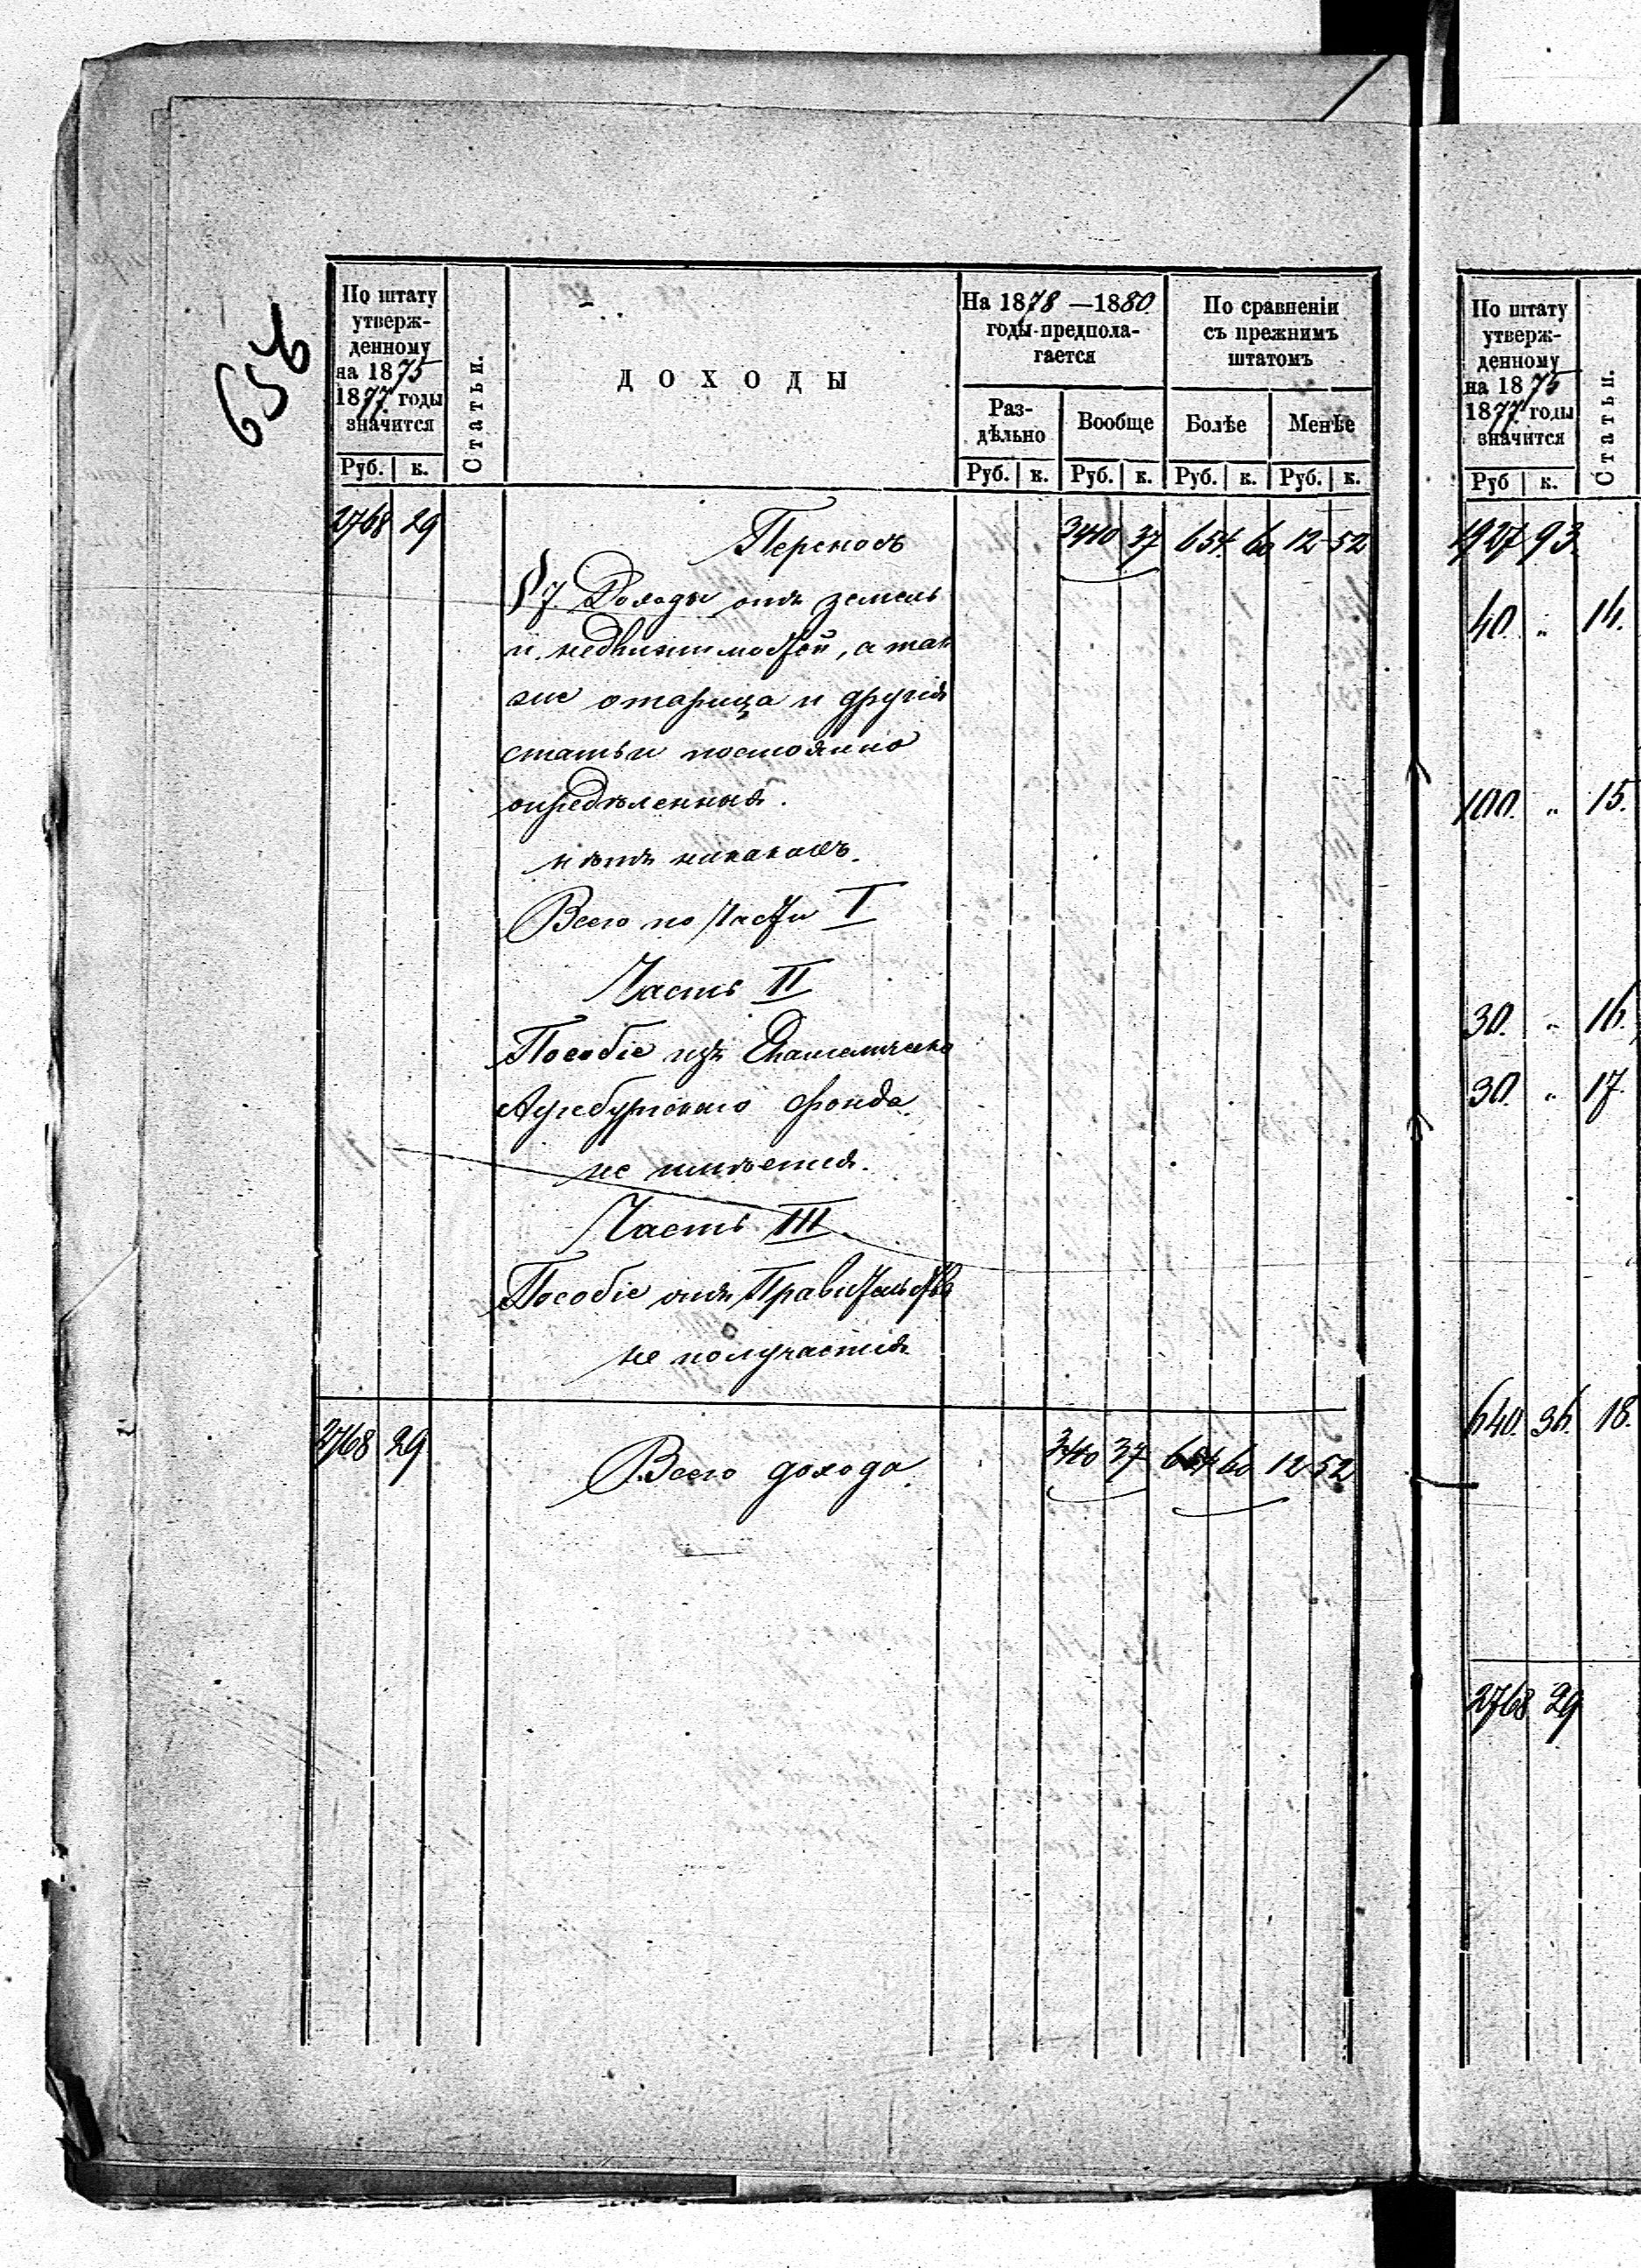 656
По штату
утверж-
денному
на 1875
1877 годы
значится
Руб. к.
Статьи.
ДОХОДЫ
На 1878 —1880
годы предпола-
гается
Раз-
дѣльно
Вообще
Руб. к. Руб. к.
По сравненіи
съ прежнимъ
штатомъ
Болѣе Менѣе
Руб. к. Руб. к.
2768 29 Переносъ 3410 37 654 60 12 52
§ 7. Доходы отъ земель
и недвижимостей, а так
же и другія
статьи постоянно
опредѣленныя.
нѣтъ никакихъ.
Всего по Части I
Часть II
Пособіе изъ Евангелическо
Аугсбургскаго фонда
не имѣется.
Часть III.
Пособіе отъ Правительства
не получается
2768 29 Всего дохода 3410 37 654 60 12 52
По штату
утверж-
денному
на 1875
1877 годы
значится
Руб к.
Статьи.
1927 93.
40 „ 14.
100. „ 15.
30. „ 16.
30. „ 17.
640. 36. 18.
2768 29